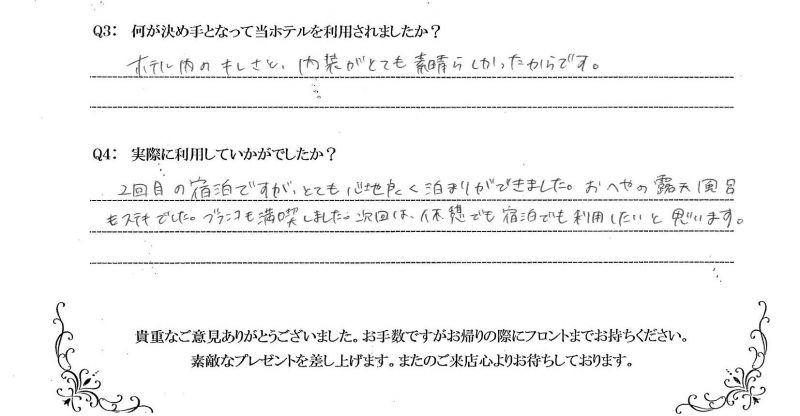 Q3： 何が決め手となって当ホテルを利用されましたか？
ホテル内のキレさと、内装がとても素晴らしかったからです。
Q4： 実際に利用していかがでしたか？
2回目の宿泊ですが、とても心地良く泊まりができました。おへやの露天風呂
もステキでした。ブランコも満喫しました。次回は、休憩でも宿泊でも利用したいと思います。
貴重なご意見ありがとうございました。お手数ですがお帰りの際にフロントまでお持ちください。
素敵なプレゼントを差し上げます。またのご来店心よりお待ちしております。